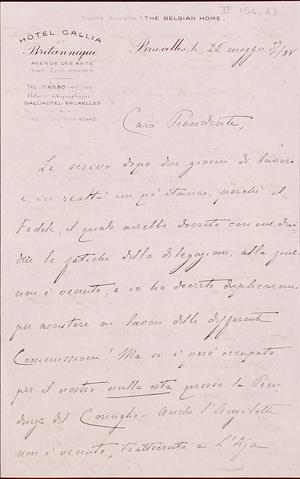 Société Anonyme "THE BELGIAN HOME."
II 156.63
HÔTEL GALLIA
et
Britannique
AVENUE DES ARTS
TEL.
GALLIAOTEL-BRUXELLES
Bruxelles, le 25 maggio
Caro Presidente,
Le scrivo dopo due giorni di lavoro
e in realtà un po' stanco, perché il
Fedele, il quale avrebbe dovuto con me divi
dere le fatiche della delegazione, alla fine
non è venuto, e io ho dovuto duplicarmi
per assistere ai lavori delle differenti
Commissioni! Ma mi si però occupato
per il nostro nulla osta presso la Presi
denza del Consiglio. Anche l'Anzilotti
non è venuto, trattenuto a L'Aja